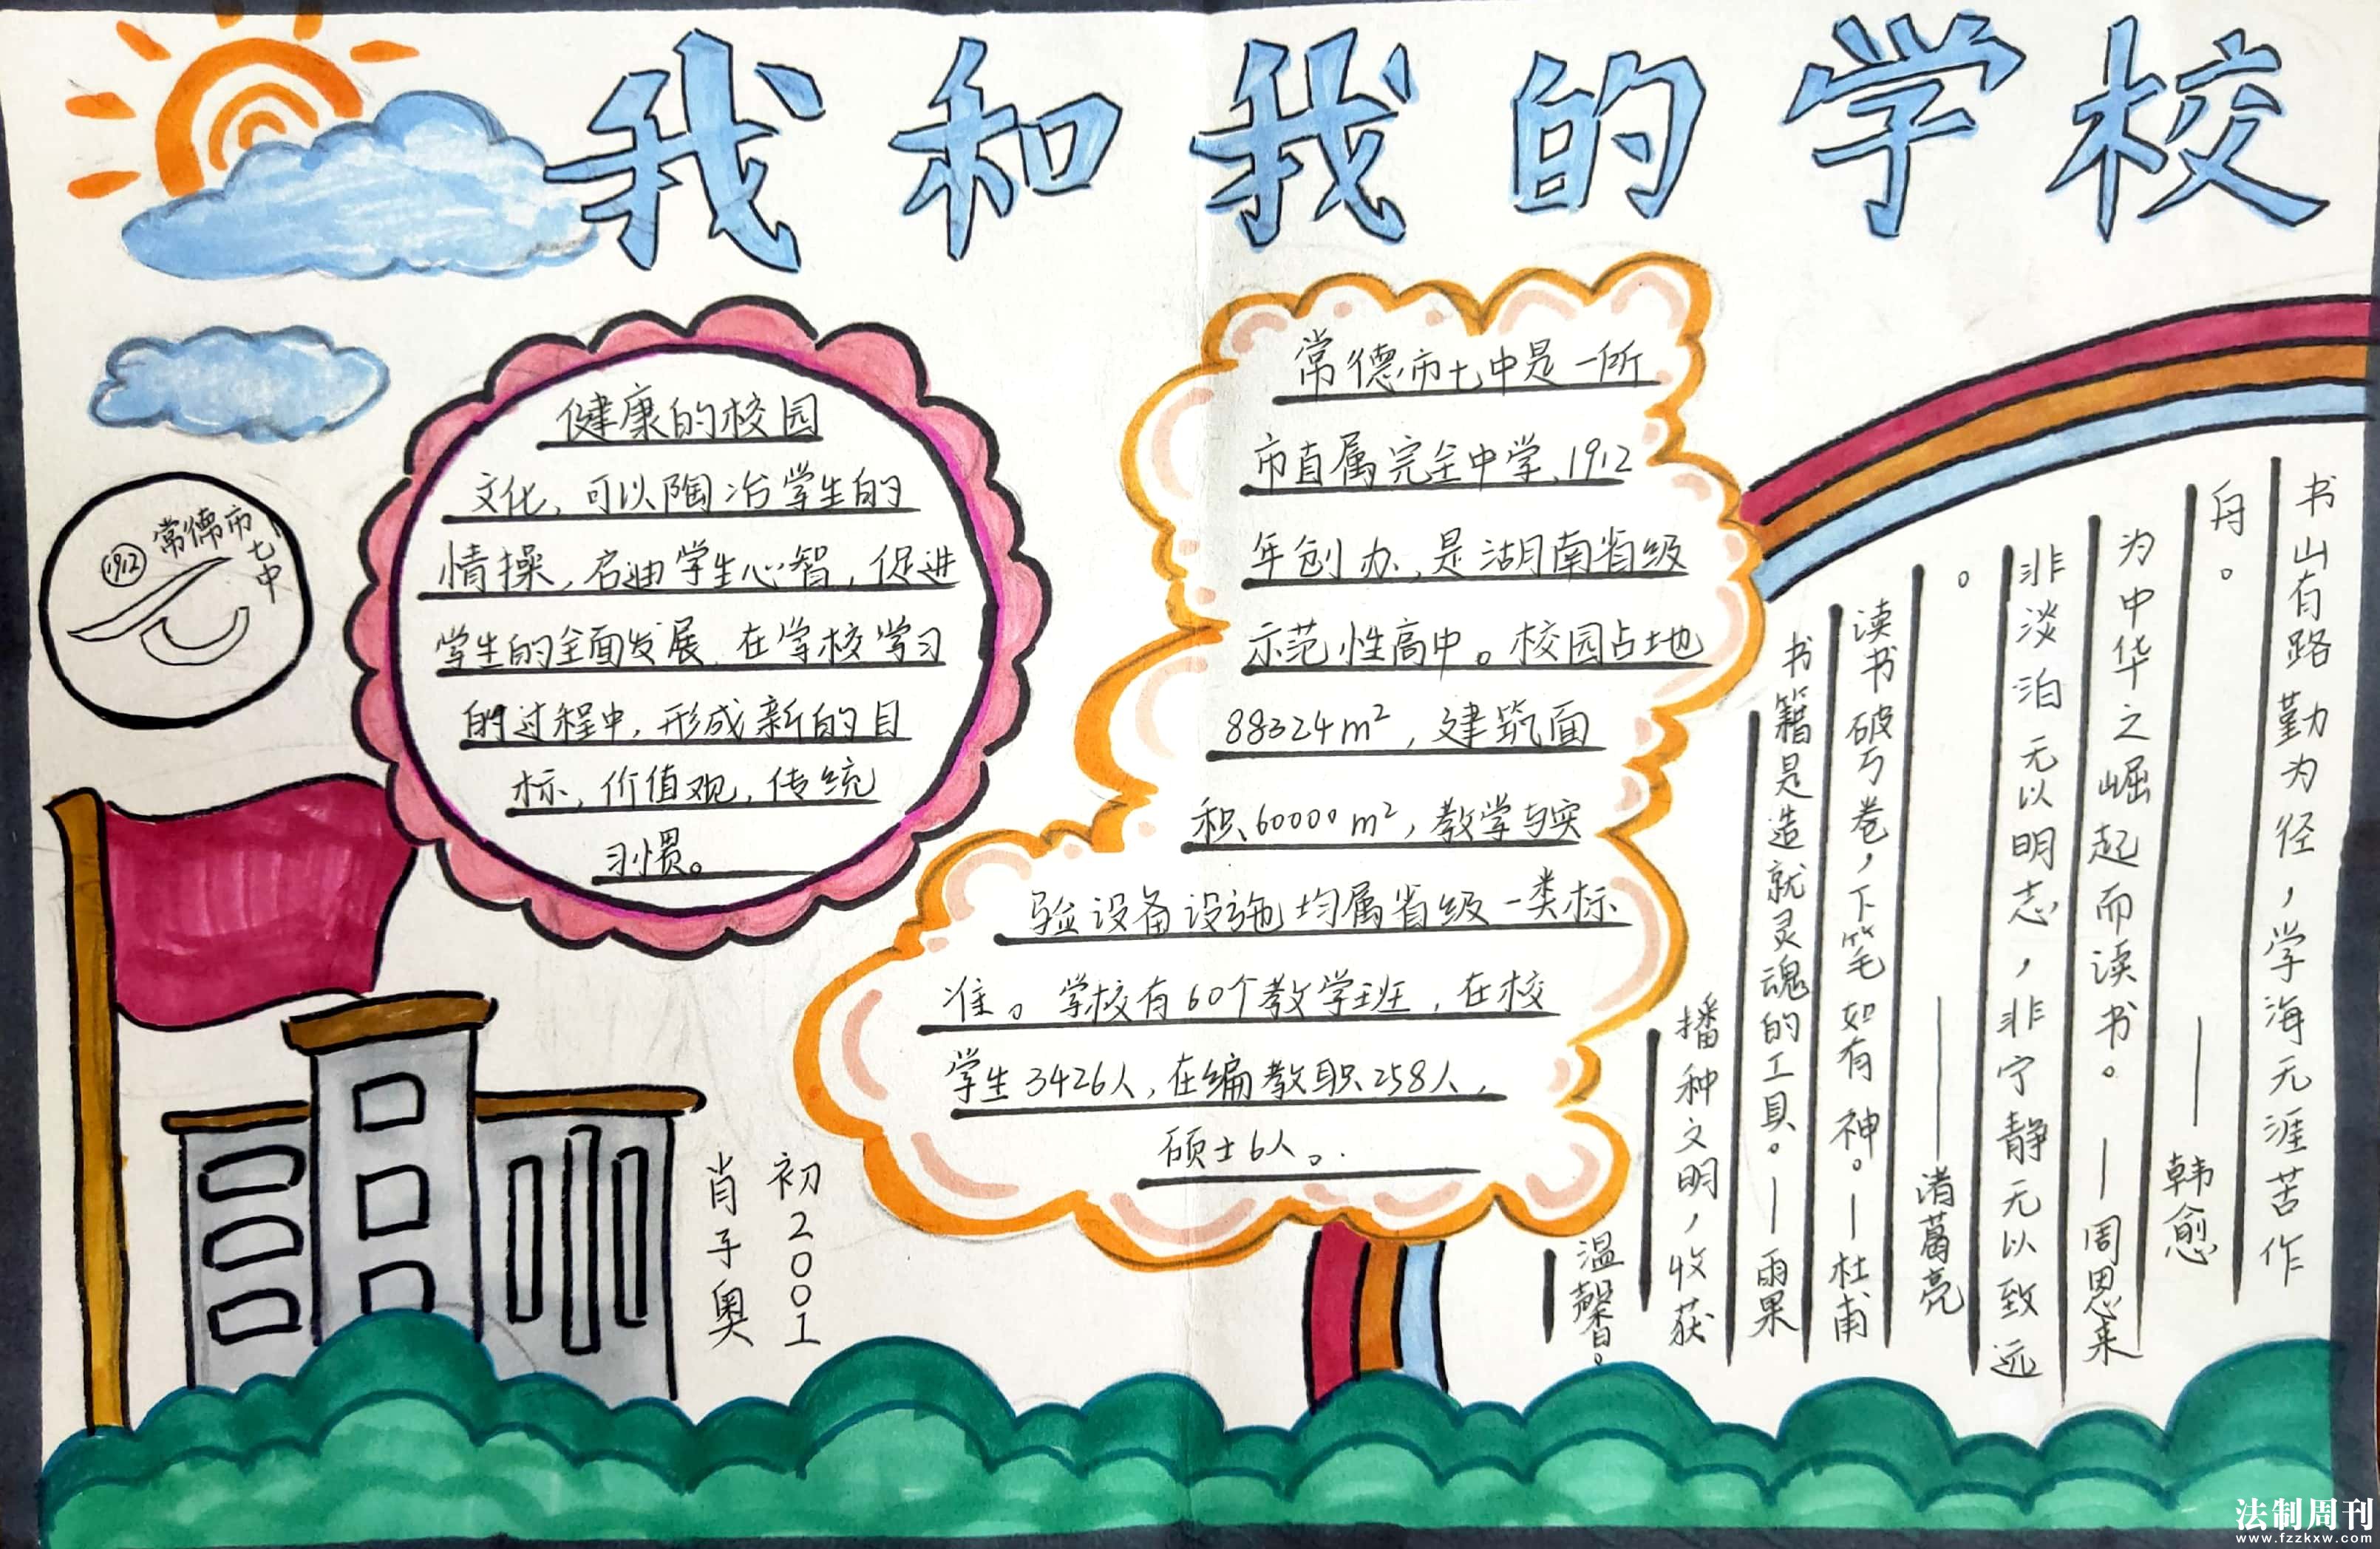 我和我的学校
健康的校园
文化，可以陶冶学生的
情操，启迪学生心智，促进
学生的全面发展，在学校学习
的过程中，形成新的目
标，价值观，传统
习惯。
常德市七中是一所
市直属完全中学、1912
年创办，是湖南省级
示范性高中。校园占地
88324m²，建筑面
积60000m²，教学与实
验设备设施均属省级一类标
准。学校有60个教学班，在校
学生3426人，在编教职258人，
硕士6人。
1912
常德市七中
书山有路勤为径，学海无涯苦作
舟。——韩愈
为中华之崛起而读书。—周恩来
非淡泊无以明志，非宁静无以致远
。——渚葛亮
读书破万卷，下笔如有神。—杜甫
书籍是造就灵魂的工具。—雨果
播种文明，收获
温馨。
初2001
肖子奥
法制周刊
www.fzzkxw.com